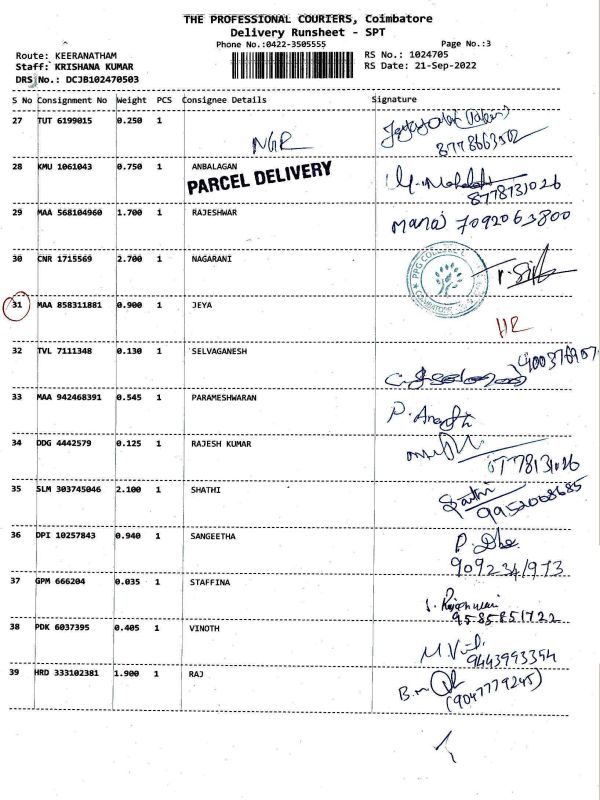 THE PROFESSIONAL COURIERS, Coimbatore
Delivery Runsheet - SPT
Phone No.:0422-3505555 Page No.:3
Route: KEERANATHAM RS No.: 1024705
Staff: KRISHANA KUMAR RS Date: 21-Sep-2022
DRS No.: DCJB102470503
S No Consignment No Weight PCS Consignee Details Signature
27 TUT 6199015 0.250 1
NGR 8778663502
28 KMU 1061043 0.750 1 ANBALAGAN
PARCEL DELIVERY 8778731026
29 MAA 568104960 1.700 1 RAJESHWAR Manaj 7092063800
30 CNR 1715569 2.700 1 NAGARANI
PPG COLLEGE COIMBATORE
31 MAA 858311881 0.900 1 JEYA
HR
32 TVL 7111348 0.130 1 SELVAGANESH
33 MAA 942468391 0.545 1 PARAMESHWARAN
34 DDG 4442579 0.125 1 RAJESH KUMAR
35 SLM 303745046 2.100 1 SHATHI
9952068685
36 DPI 10257843 0.940 1 SANGEETHA
37 GPM 666204 0.035 1 STAFFINA
9585851722
38 PDK 6037395 0.405 1 VINOTH
9443993354
39 HRD 333102381 1.900 1 RAJ
(9047779245)